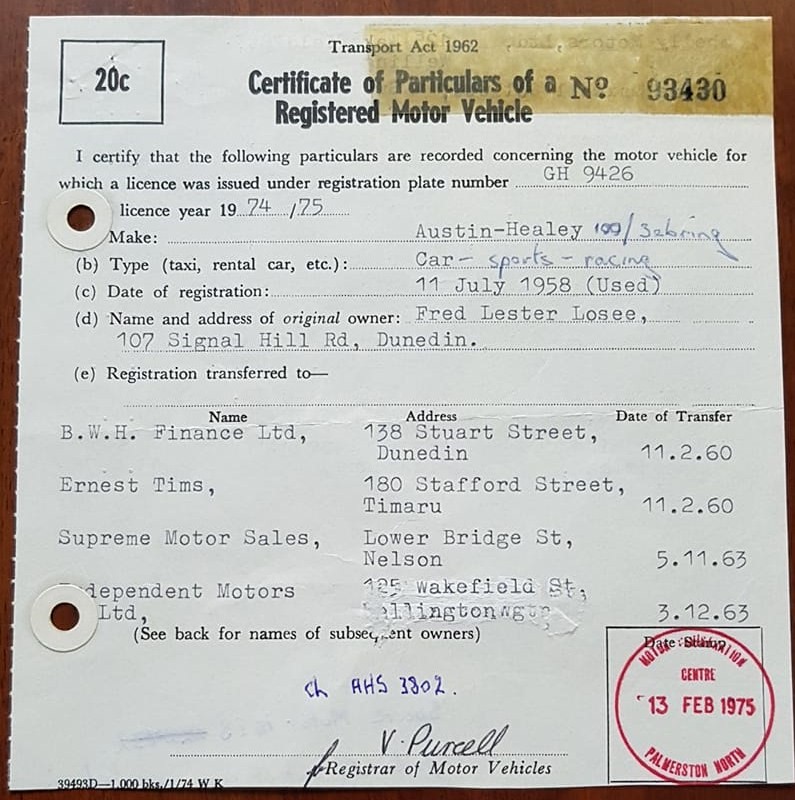 Transport Act 1962
20c
Certificate of Particulars of a
Registered Motor Vehicle
Nº 93430
I certify that the following particulars are recorded concerning the motor vehicle for
which a licence was issued under registration plate number GH 9426
licence year 1974/75
Make: Austin-Healey 100/Sebring
(b) Type (taxi, rental car, etc.): Car - sports - racing
(c) Date of registration: 11 July 1958 (Used)
(d) Name and address of original owner: Fred Lester Losee,
107 Signal Hill Rd, Dunedin.
(e) Registration transferred to—
Name Address Date of Transfer
B.W.H. Finance Ltd, 138 Stuart Street,
Dunedin 11.2.60
Ernest Tims, 180 Stafford Street,
Timaru 11.2.60
Supreme Motor Sales, Lower Bridge St,
Nelson 5.11.63
dependent Motors 125 Wakefield St,
Ltd, ellington 3.12.63
(See back for names of subsequent owners)
Date Stamp
MOTOR REGISTRATION
CENTRE
13 FEB 1975
PALMERSTON NORTH
ch AHS 3802.
V. Purcell
Registrar of Motor Vehicles
39493D—1,000 bks./1/74 W K